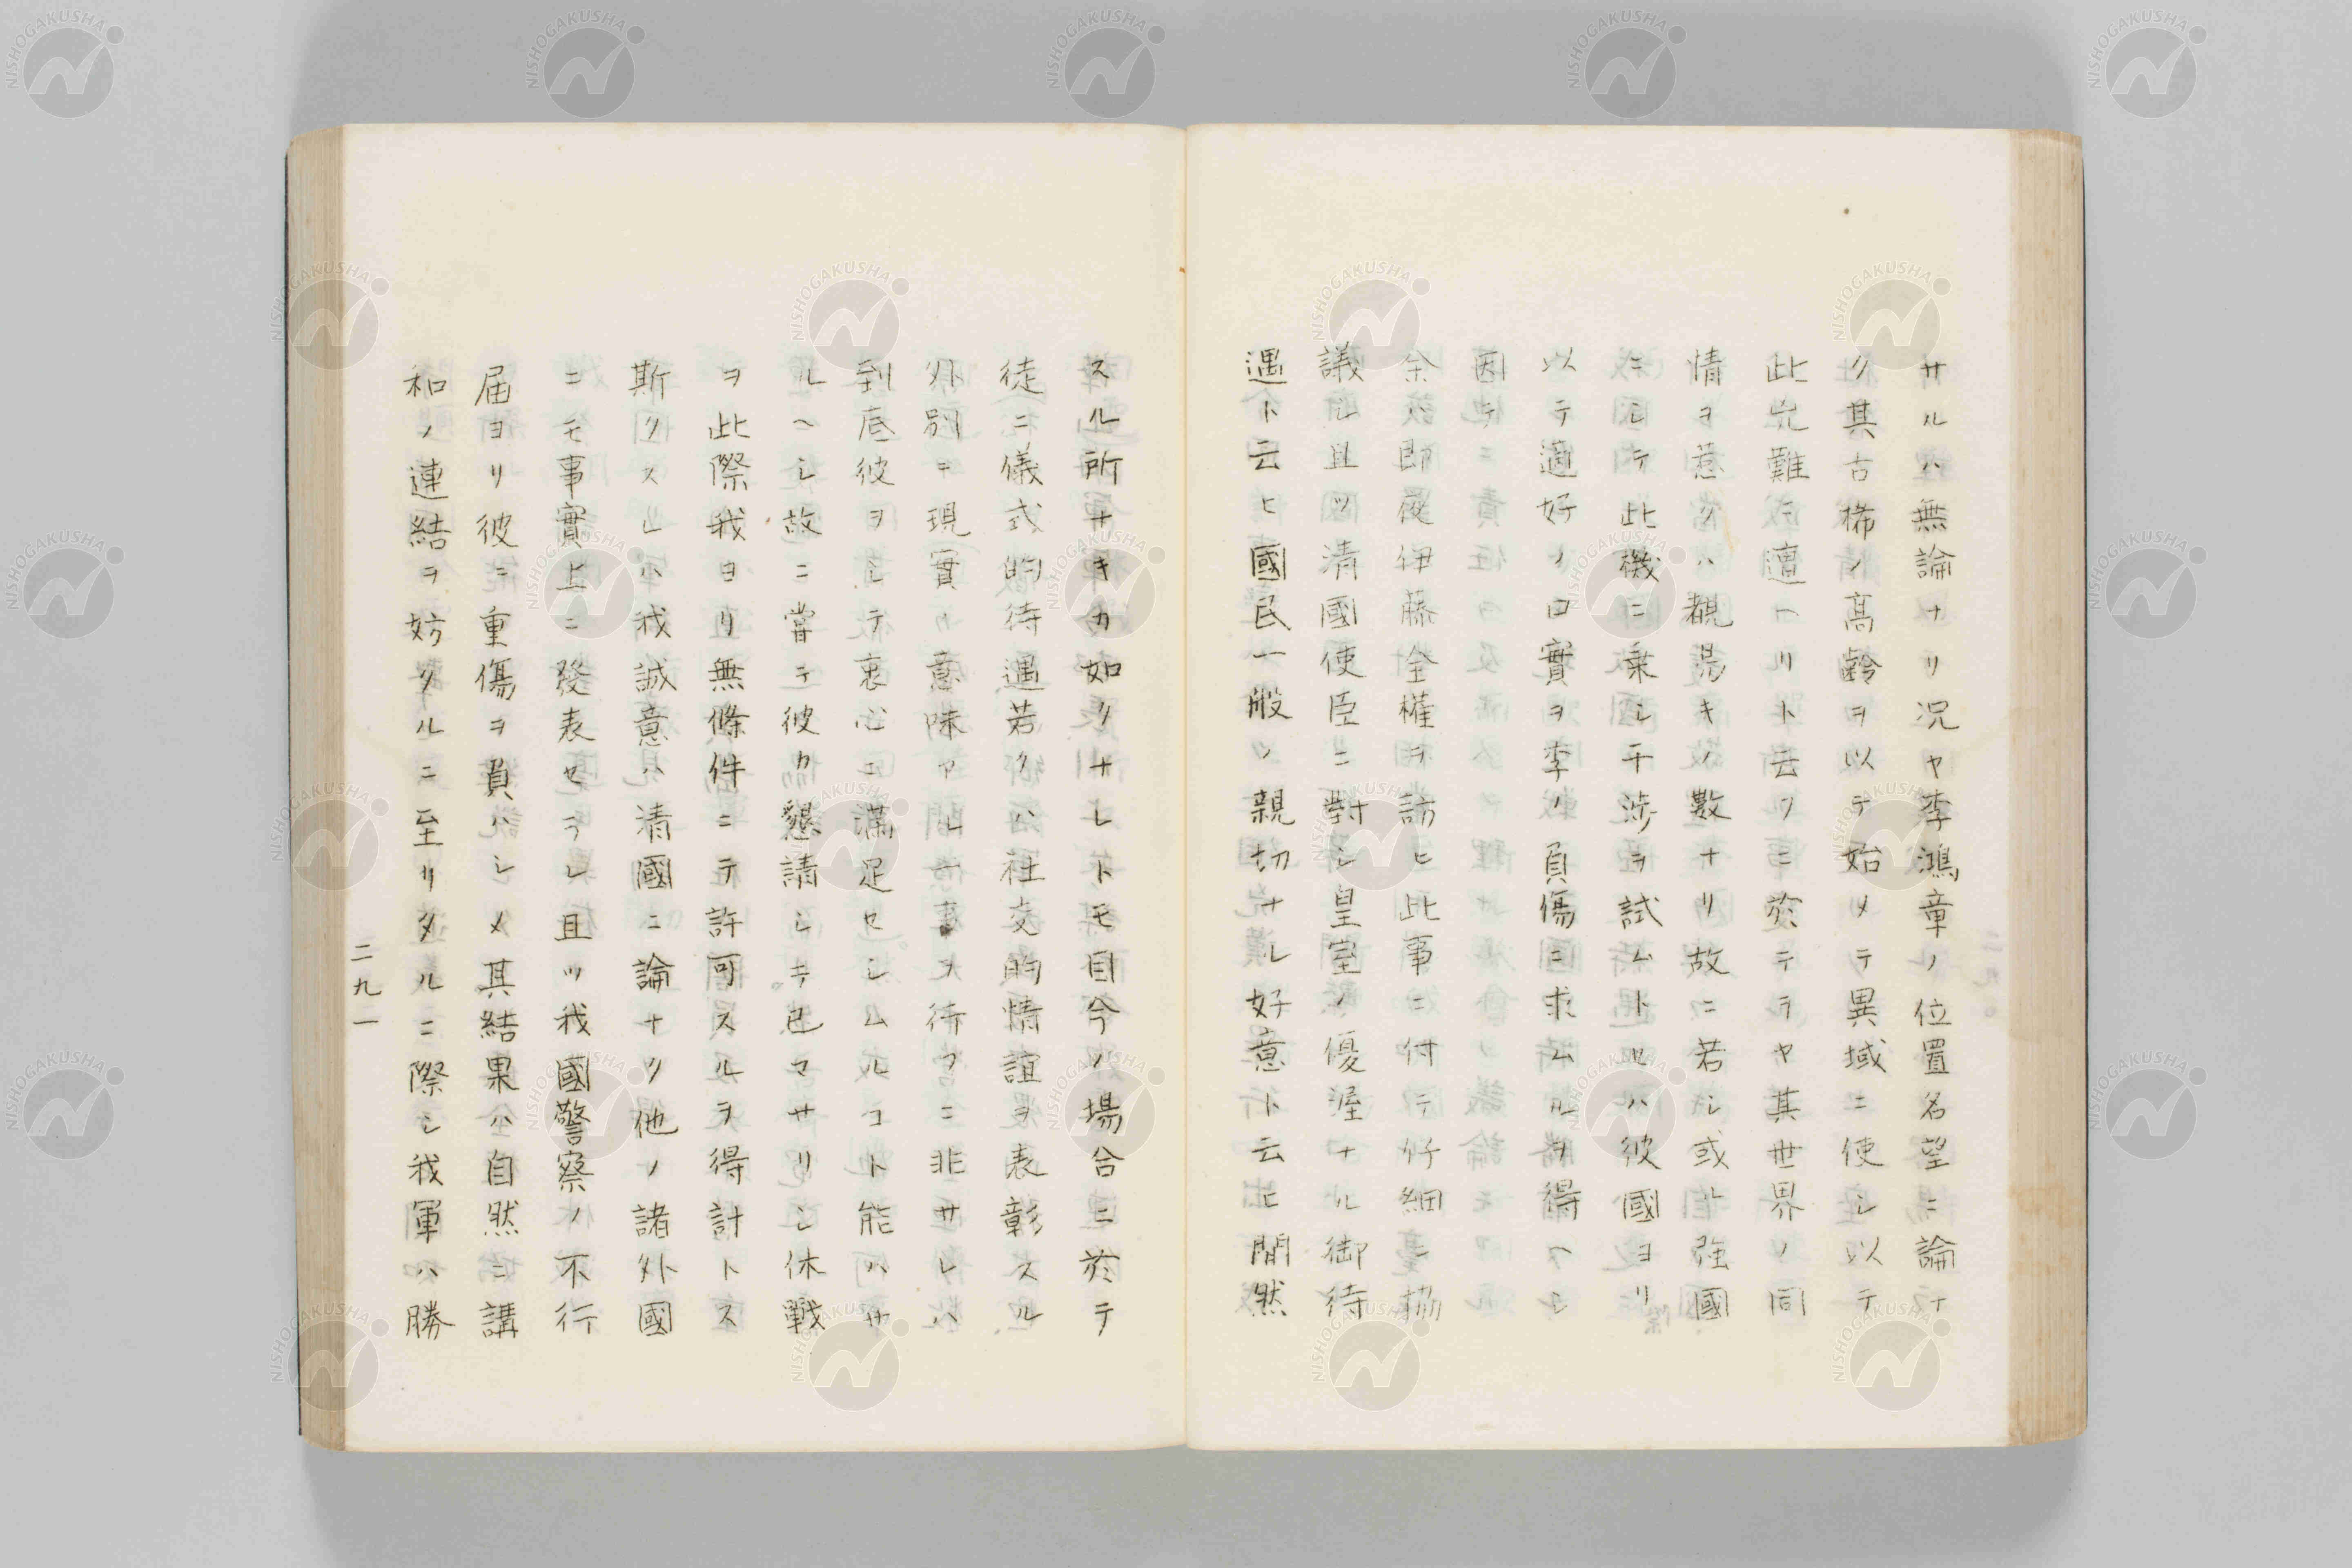 サルハ無論ナリ況ヤ李鴻章ノ位置名望ニ論ナ
ク其古稀ノ高齢ヲ以テ始メテ異域ニ使シ以テ
此兇難ニ遭ヘリト云フニ於テヲヤ其世界ノ同
情ヲ惹クハ覩易キノ數ナリ故ニ若シ或ル強國
ニシテ此機ニ乗シ干渉ヲ試ムトセハ彼國ヨリ
以テ適好ノ口實ヲ李ノ負傷ニ求ムルヲ得ヘシ
因テ
余ハ即夜伊藤全権ヲ訪ヒ此事ニ付テ仔細ニ協
議シ且ツ清國使臣ニ對シ皇室ノ優渥ナル御待
遇ト云ヒ國民一般ノ親切ナル好意ト云ヒ間然
スル所ナキカ如クナレトモ目今ノ場合ニ於テ
徒ニ儀式的待遇若クハ社交的情誼ヲ表彰スル
外別ニ現實ノ意味アル一事ヲ待フニ非サレハ
到底彼ヲシテ衷心ニ満足セシムルコト能ハサ
ルヘシ故ニ嘗テ彼カ懇請シテ已マサリシ休戰
ヲ此際我ヨリ無條件ニテ許可スルヲ得計トス
斯クスレハ我誠意ハ清國ニ論ナク他ノ諸外國
ニモ事實上ニ發表セラレ且ツ我國警察ノ不行
届ヨリ彼ニ重傷ヲ負ハシメ其結果ハ自然ニ講
和ノ連結ヲ妨クルニ至リタルニ際シ我軍ハ勝
二九一
NISHOGAKUSHA